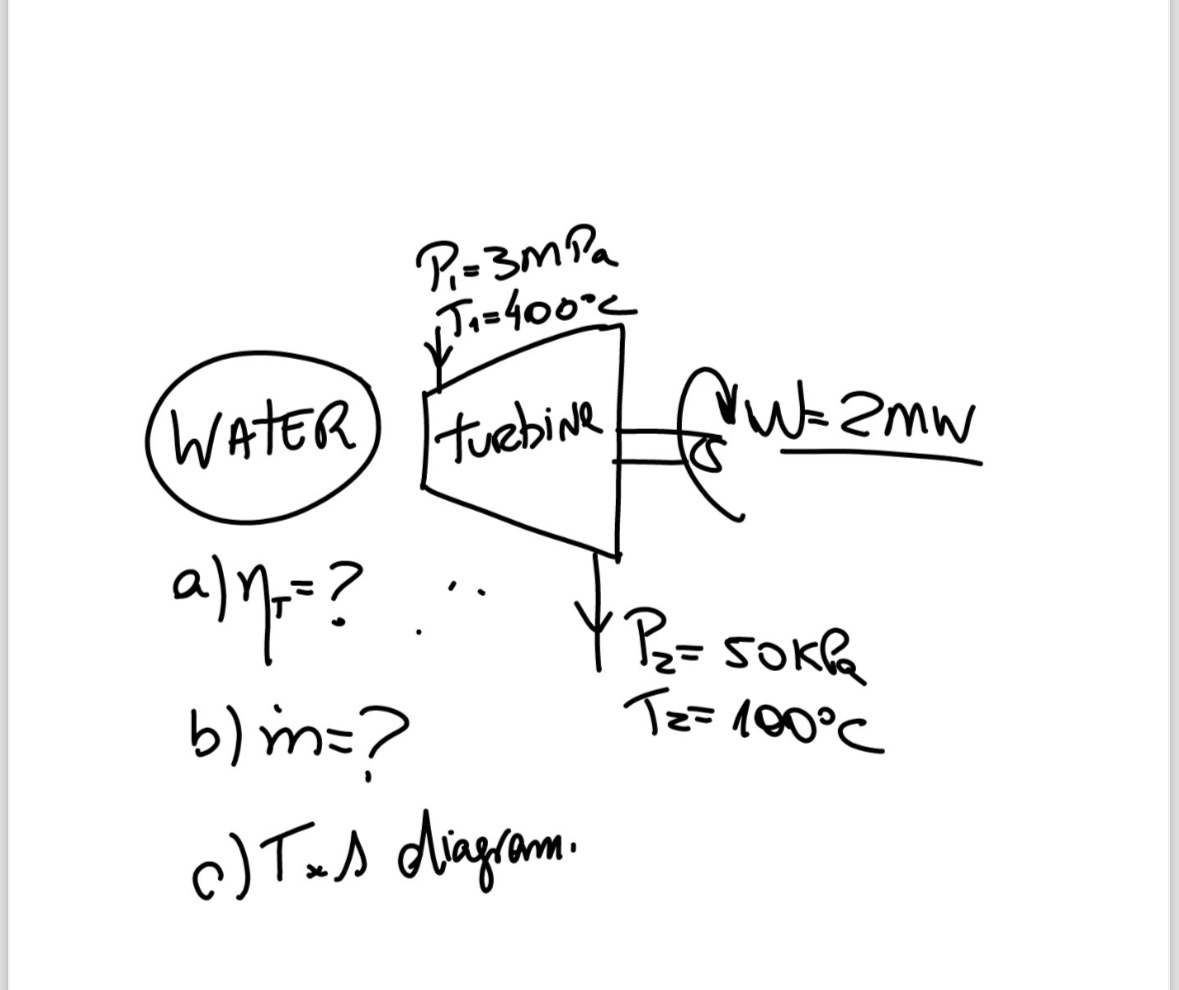 P₁=3mPa
T₁=400°C
WATER
turbine
W=2mW
a) η_T=?
P₂=50KPa
T₂=100°C
b) ṁ=?
c) T×s diagram.